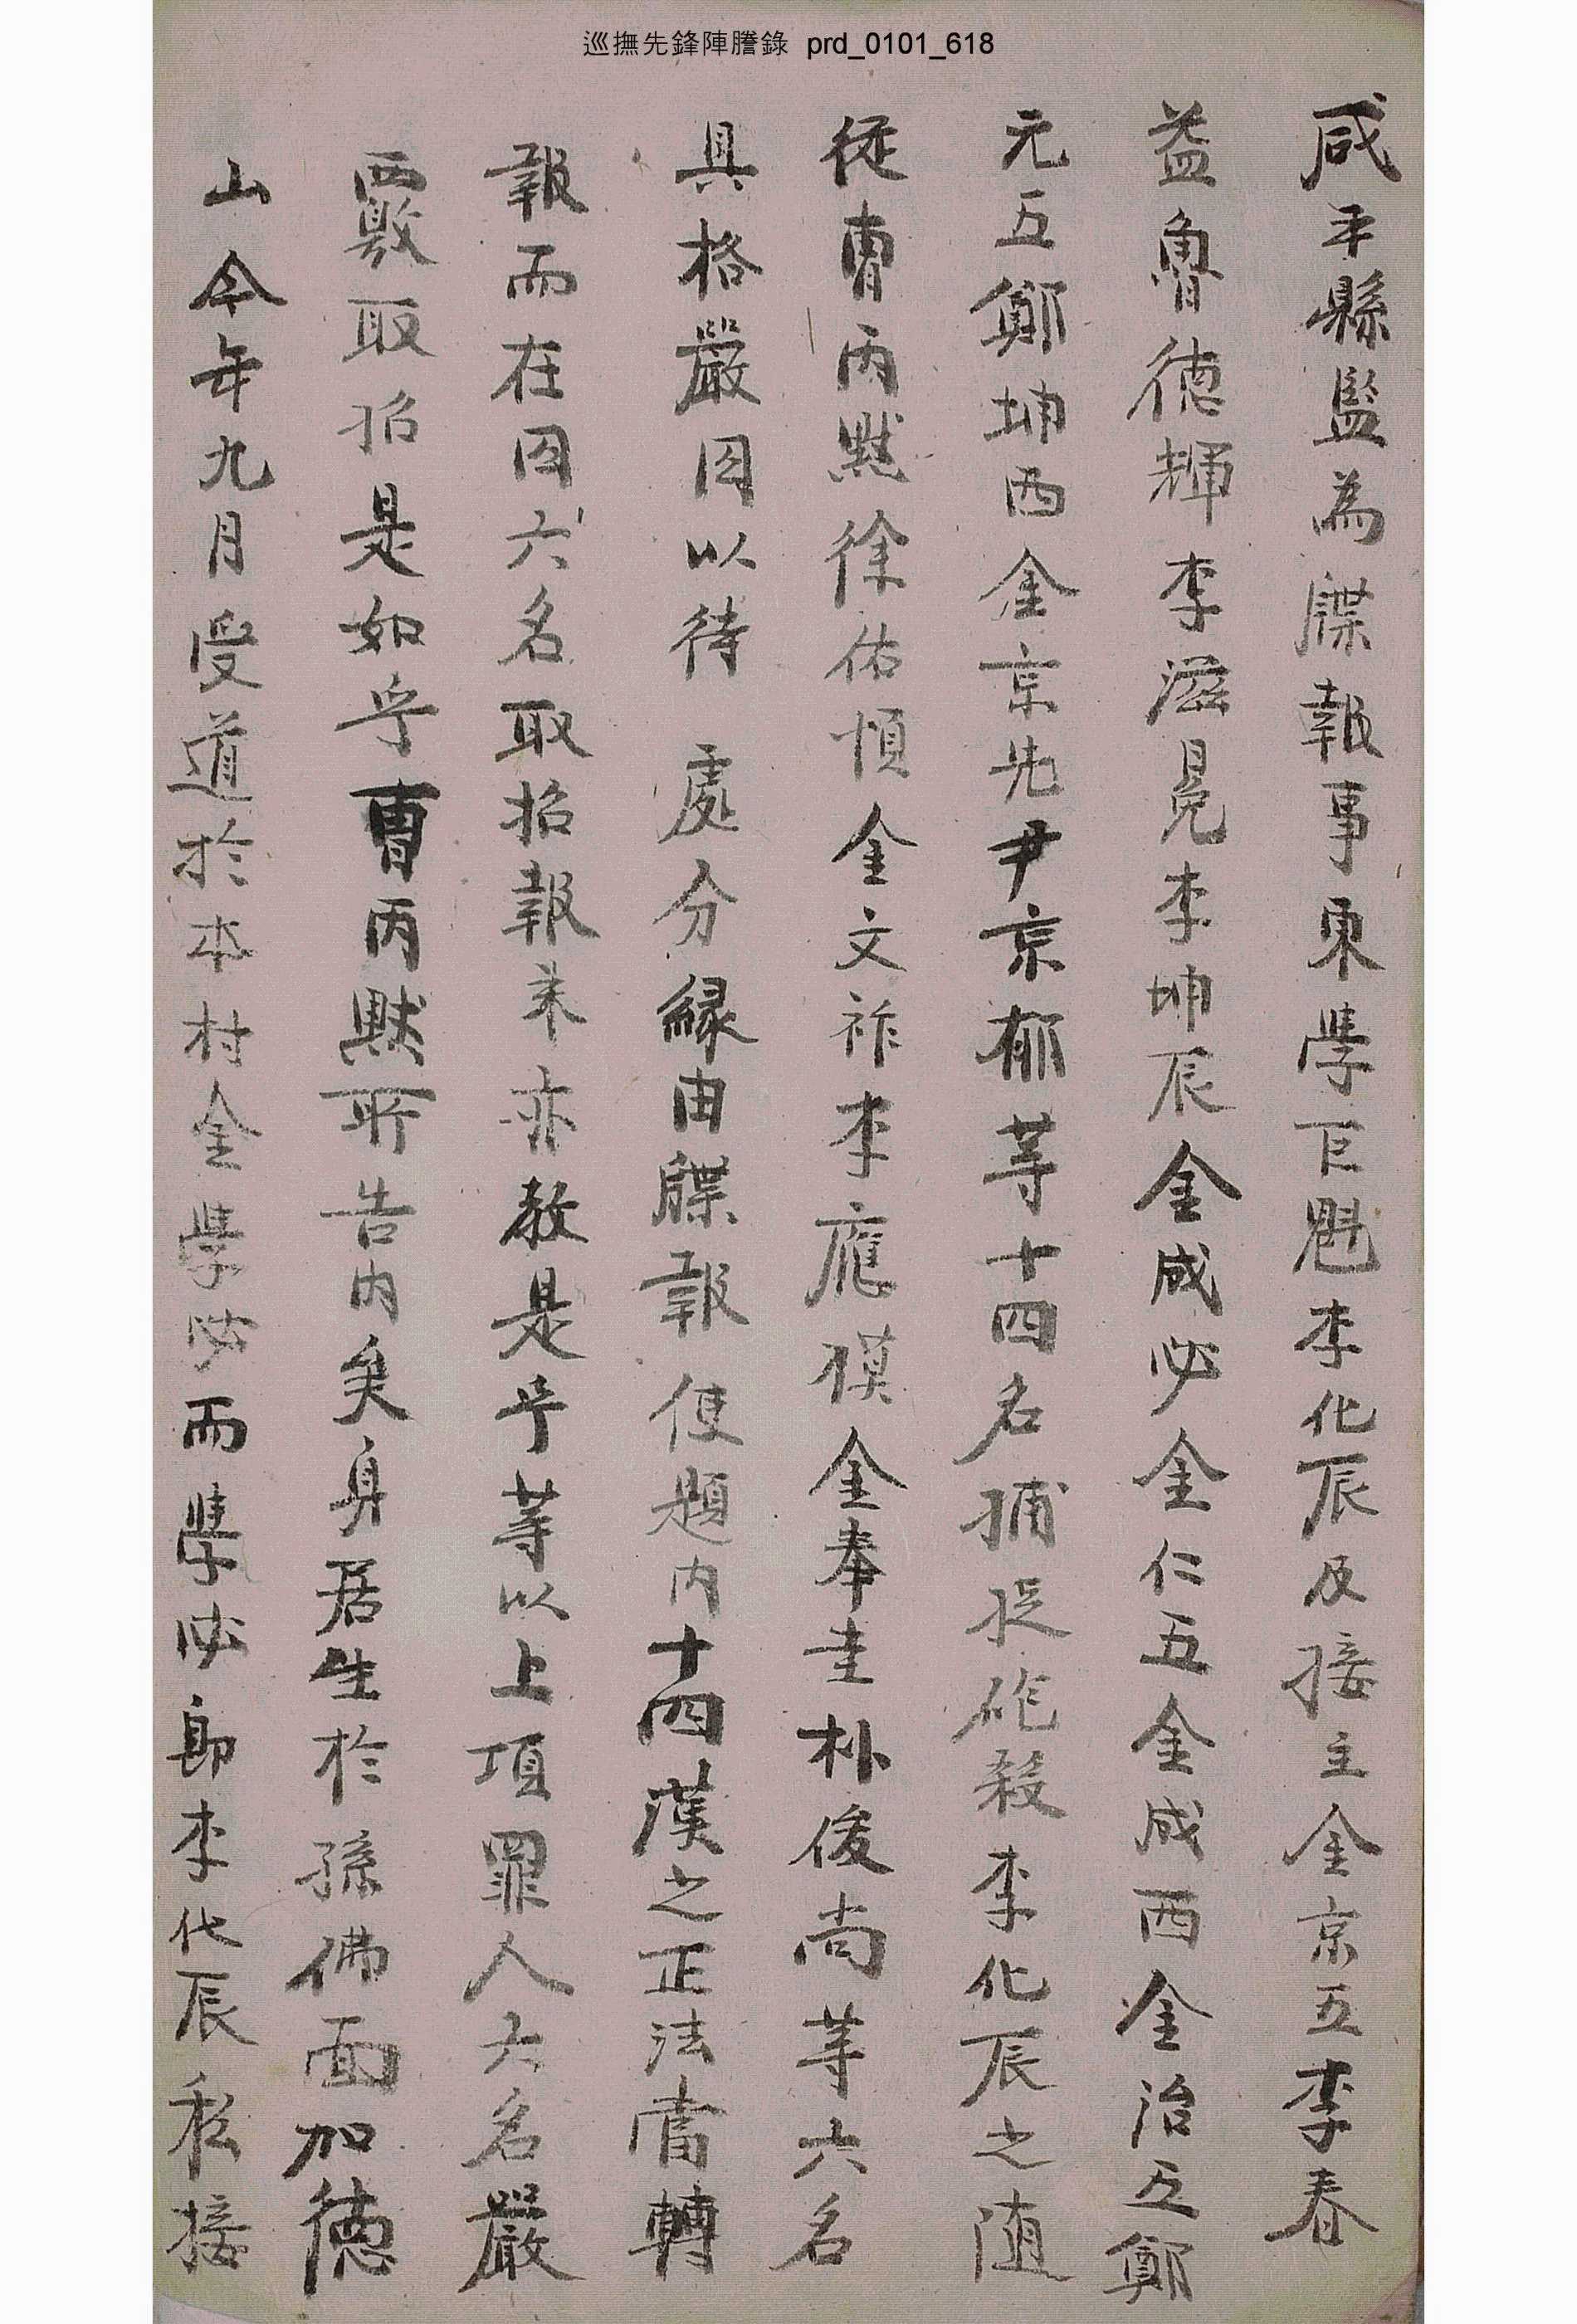 巡撫先鋒陣謄錄 prd_0101_618
咸平縣監爲牒報事東學巨魁李化辰及接主金京五李春
益魯德輝李滋晃李坤辰金成必金仁五金成西金治五鄭
元五鄭坤西金京先尹京郁等十四名捕捉砲殺李化辰之随
從曺丙黙徐佑順金文祚李應模金奉圭朴俊尚等六名
具格嚴囚以待 處分緣由牒報 使題內十四漢之正法當轉
報而在囚六名取招報来亦教是乎等以上項罪人六名嚴
覈取招是如乎曺丙黙所告內矣身居生於孫佛面加德
山今年九月受道於本村金學必而學必卽李化辰私接